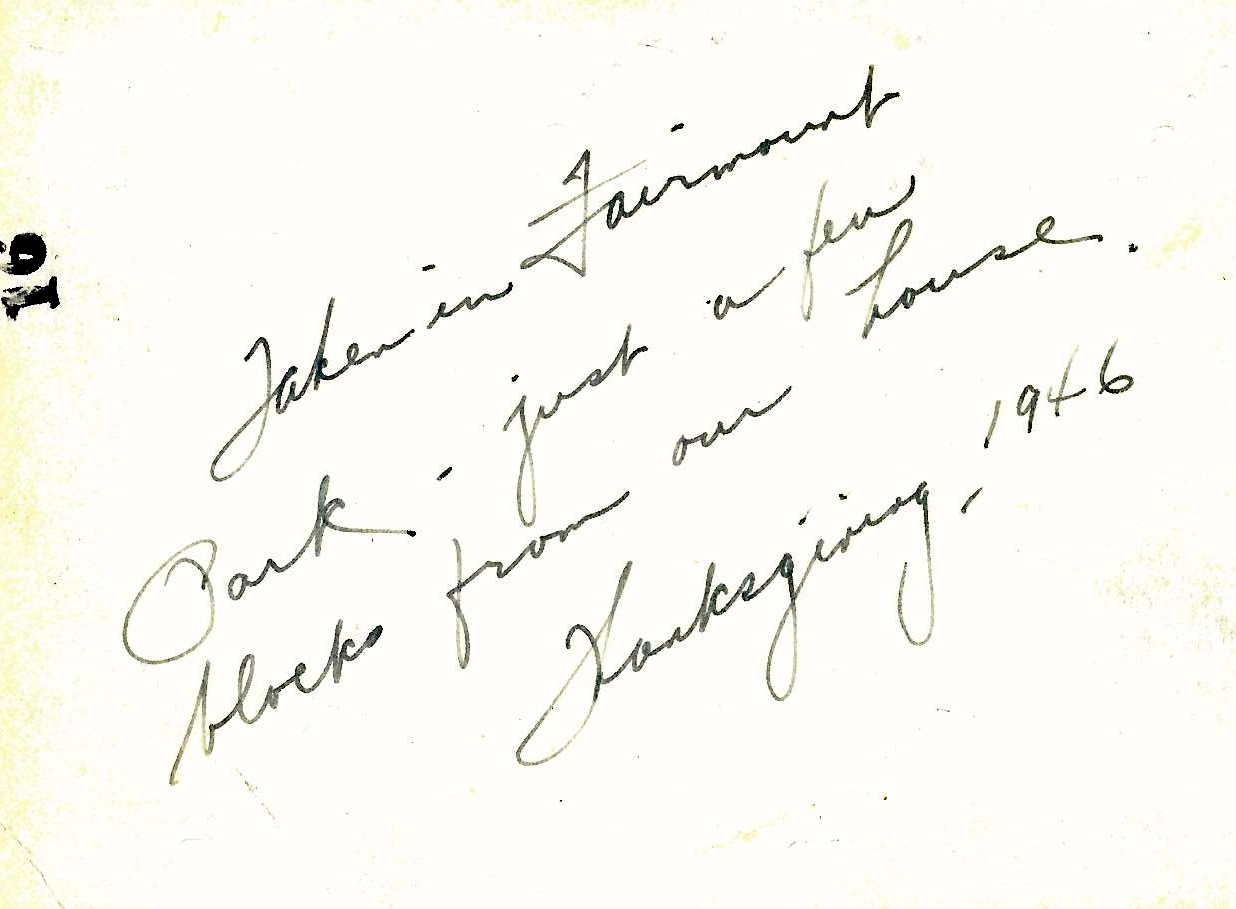 Taken in Fairmount
Park - just a few
blocks from our house.
Thanksgiving, 1946
19